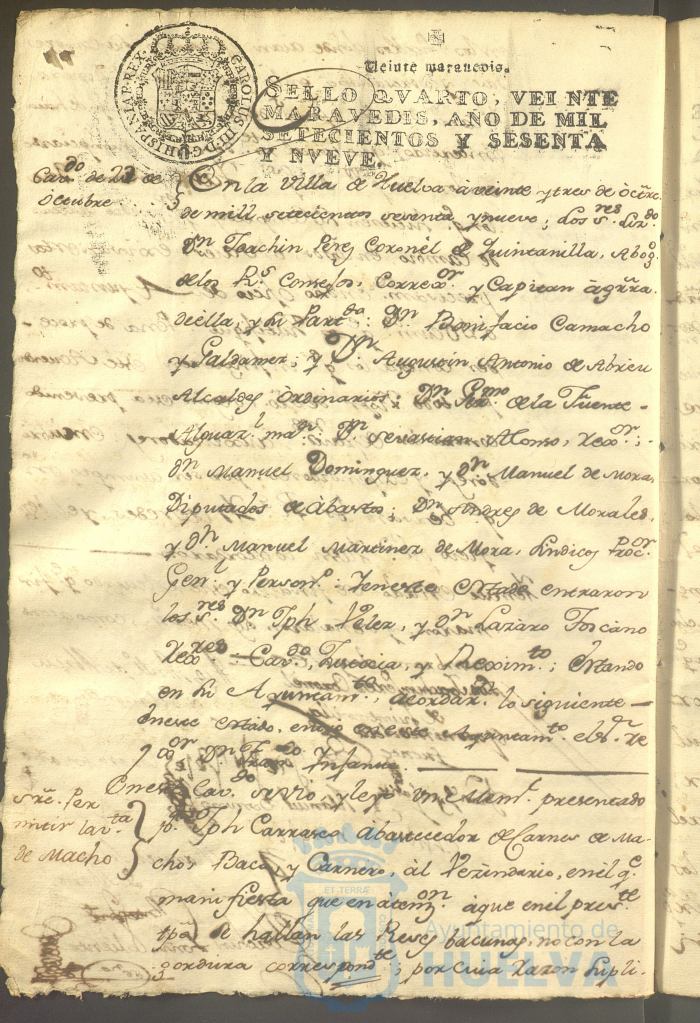 CAROLUS III D.G. HISPANIAR. REX
Veinte maravedis.
SELLO QVARTO, VEINTE
MARAVEDIS, AÑO DE MIL
SETECIENTOS Y SESENTA
Y NVEVE.
Cavdo de 23 de
Octubre
En la Villa de Huelva à veinte y tres de Octre
de mill setecientos sesenta y nueve; Los Sres Lizdo
Dn Joachin Perez Coronel de Quintanilla, Abogo
de los Rs Consejos, Correxor y Capitan à grra
de ella, y su Partdo: Dn Bonifacio Camacho
y Galdamez; y Dn Augustin Antonio de Abreu
Alcaldes Ordinarios: Dn de la Fuente
Alguazl maor Dn Sevastian Alonso, Rexor;
dn Manuel Dominguez, y dn Manuel de Mora
Diputados de àbasto; Dn Andres de Morales,
y dn Manuel Martinez de Mora, Sindicos Procor
Genl y Persono: Y en este estado entraron
los Sres Dn Jph Velez, y Dn Lazaro Toscano
Rexores Cavdo, Justicia, y Reximto; Estando
en su Ayuntamto, acordar. lo siguiente
En este estado, entro en este Ayuntamto el Sr Re
xor Dn Franco Infante.
En este Cavdo se vio, y leyo un Meml presentado
Sre. Per
mitir la vta
de Macho
por Jph Carrasco àbastecedor de Carnes de Ma-
chos Baca, y Carnero, àl Vezindario, en el qe
manifiesta que en atenzon à que en el preste
tpo se hallan las Reses bacunas, no con la
gordura correspondte; por cuia razon supli-
ET TERRÆ
Ayuntamiento de
HUELVA